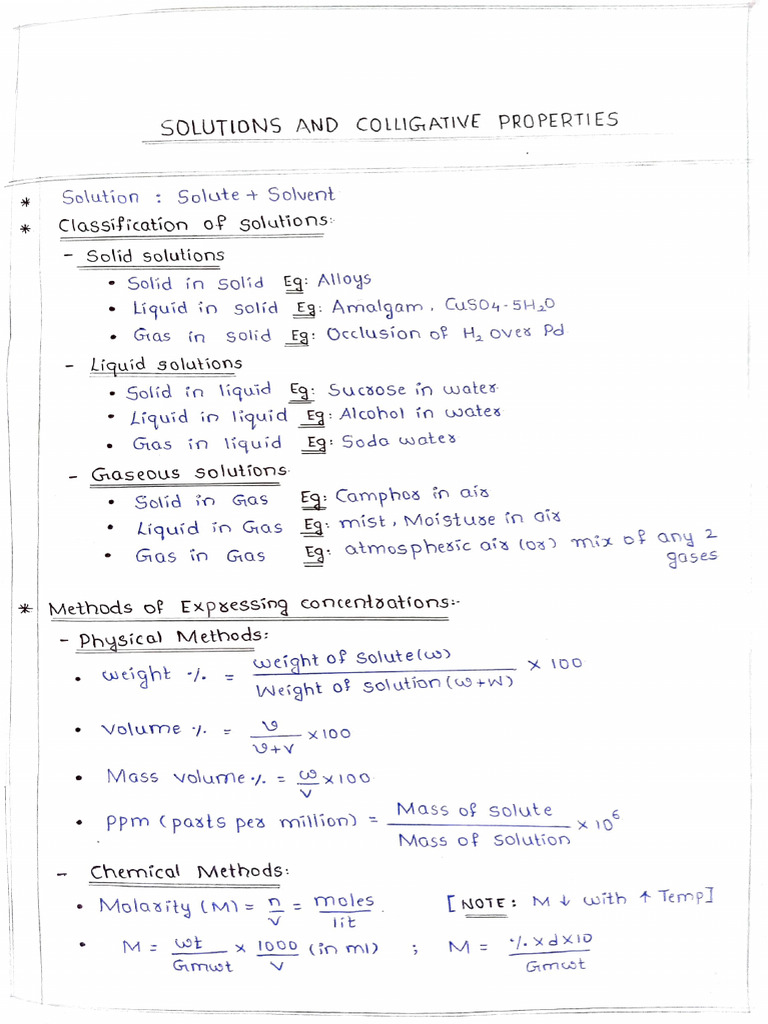 SOLUTIONS AND COLLIGATIVE PROPERTIES
* Solution : Solute + Solvent
* Classification of solutions:-
- Solid solutions
• Solid in solid Eg: Alloys
• Liquid in solid Eg: Amalgam, CuSO4·5H2O
• Gas in solid Eg: Occlusion of H2 over Pd
- Liquid solutions
• Solid in liquid Eg: Sucrose in water
• Liquid in liquid Eg: Alcohol in water
• Gas in liquid Eg: Soda water
- Gaseous solutions
• Solid in Gas Eg: Camphor in air
• Liquid in Gas Eg: mist, Moisture in air
• Gas in Gas Eg: atmospheric air (or) mix of any 2
gases
* Methods of Expressing concentrations:-
- Physical Methods:
• weight % = weight of solute(w) / Weight of solution (w+W) × 100
• Volume % = v / v+V × 100
• Mass volume % = w/V × 100
• ppm (parts per million) = Mass of solute / Mass of solution × 10^6
- Chemical Methods:
• Molarity (M) = n/V = moles/lit [NOTE: M ↓ with ↑ Temp]
• M = wt/Gmwt × 1000/V (in ml) ; M = % x d x 10 / Gmwt